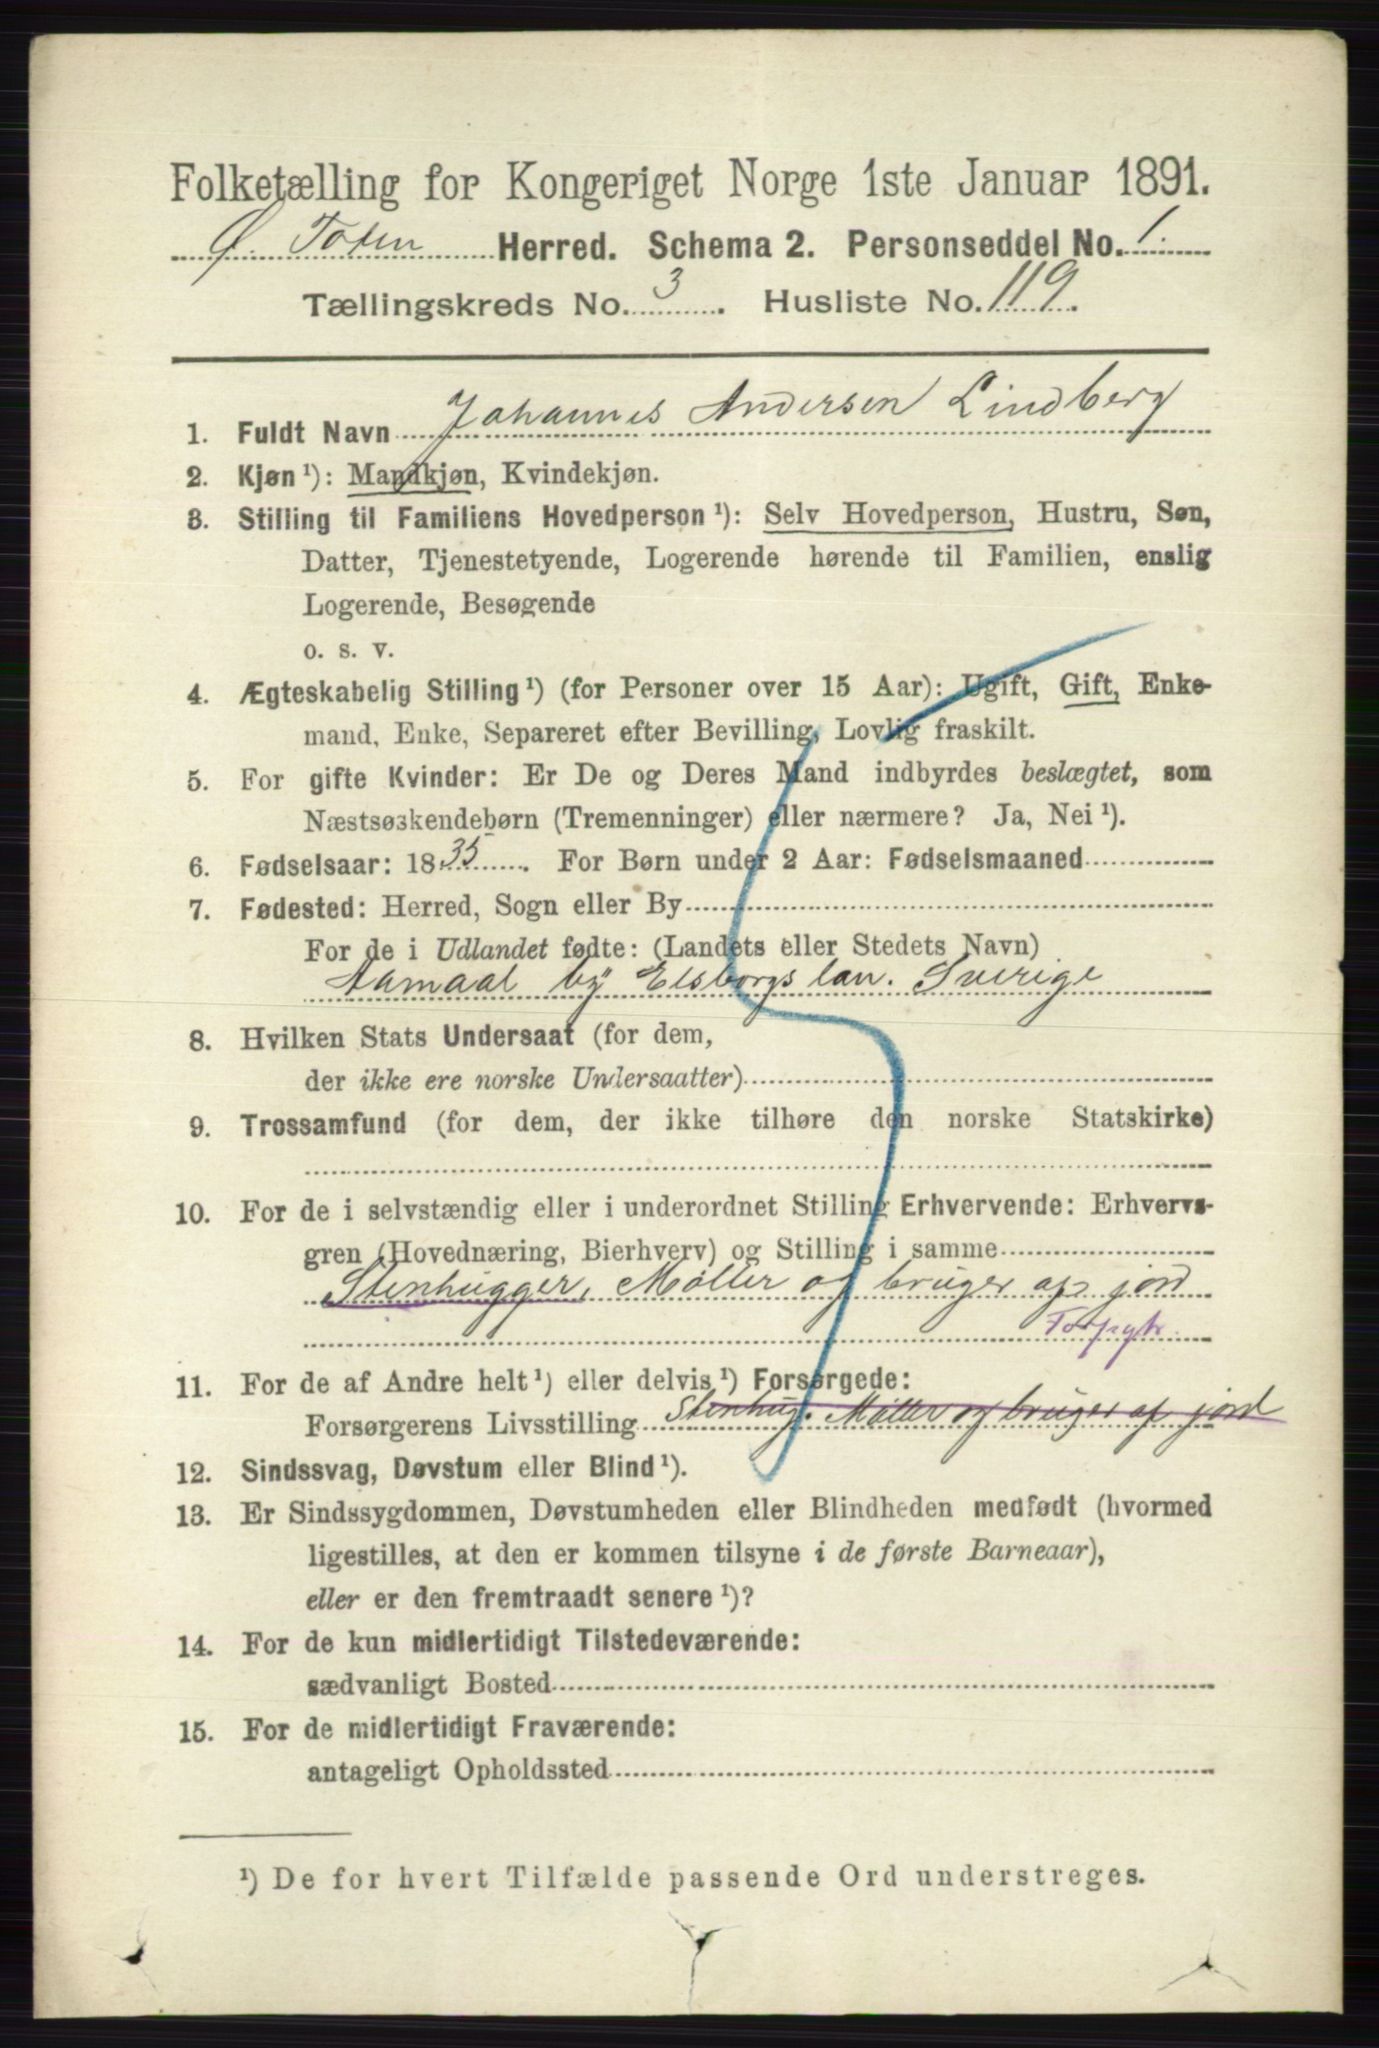 Folketælling for Kongeriget Norge 1ste Januar 1891.
Ø. Toten Herred. Schema 2. Personseddel No. 1.
Tællingskreds No. 3. Husliste No. 119.
1. Fuldt Navn Johannes Andersen Lindberg
2. Kjøn ¹): Mandkjøn, Kvindekjøn.
3. Stilling til Familiens Hovedperson ¹): Selv Hovedperson, Hustru, Søn,
Datter, Tjenestetyende, Logerende hørende til Familien, enslig
Logerende, Besøgende
o. s. v.
4. Ægteskabelig Stilling ¹) (for Personer over 15 Aar): Ugift, Gift, Enke-
mand, Enke, Separeret efter Bevilling, Lovlig fraskilt.
5. For gifte Kvinder: Er De og Deres Mand indbyrdes beslægtet, som
Næstsøskendebørn (Tremenninger) eller nærmere? Ja, Nei ¹).
6. Fødselsaar: 1835. For Børn under 2 Aar: Fødselsmaaned
7. Fødested: Herred, Sogn eller By
For de i Udlandet fødte: (Landets eller Stedets Navn)
Aamaal by Elsborgs lan. Sverige
8. Hvilken Stats Undersaat (for dem,
der ikke ere norske Undersaatter)
9. Trossamfund (for dem, der ikke tilhøre den norske Statskirke)
10. For de i selvstændig eller i underordnet Stilling Erhvervende: Erhvervs-
gren (Hovednæring, Bierhverv) og Stilling i samme
Stenhugger, Møller og bruger af jord
11. For de af Andre helt ¹) eller delvis ¹) Forsørgede:
Forsørgerens Livsstilling Stenhug. Møller og bruger af jord
12. Sindssvag, Døvstum eller Blind ¹).
13. Er Sindssygdommen, Døvstumheden eller Blindheden medfødt (hvormed
ligestilles, at den er kommen tilsyne i de første Barneaar),
eller er den fremtraadt senere ¹)?
14. For de kun midlertidigt Tilstedeværende:
sædvanligt Bosted
15. For de midlertidigt Fraværende:
antageligt Opholdssted
¹) De for hvert Tilfælde passende Ord understreges.